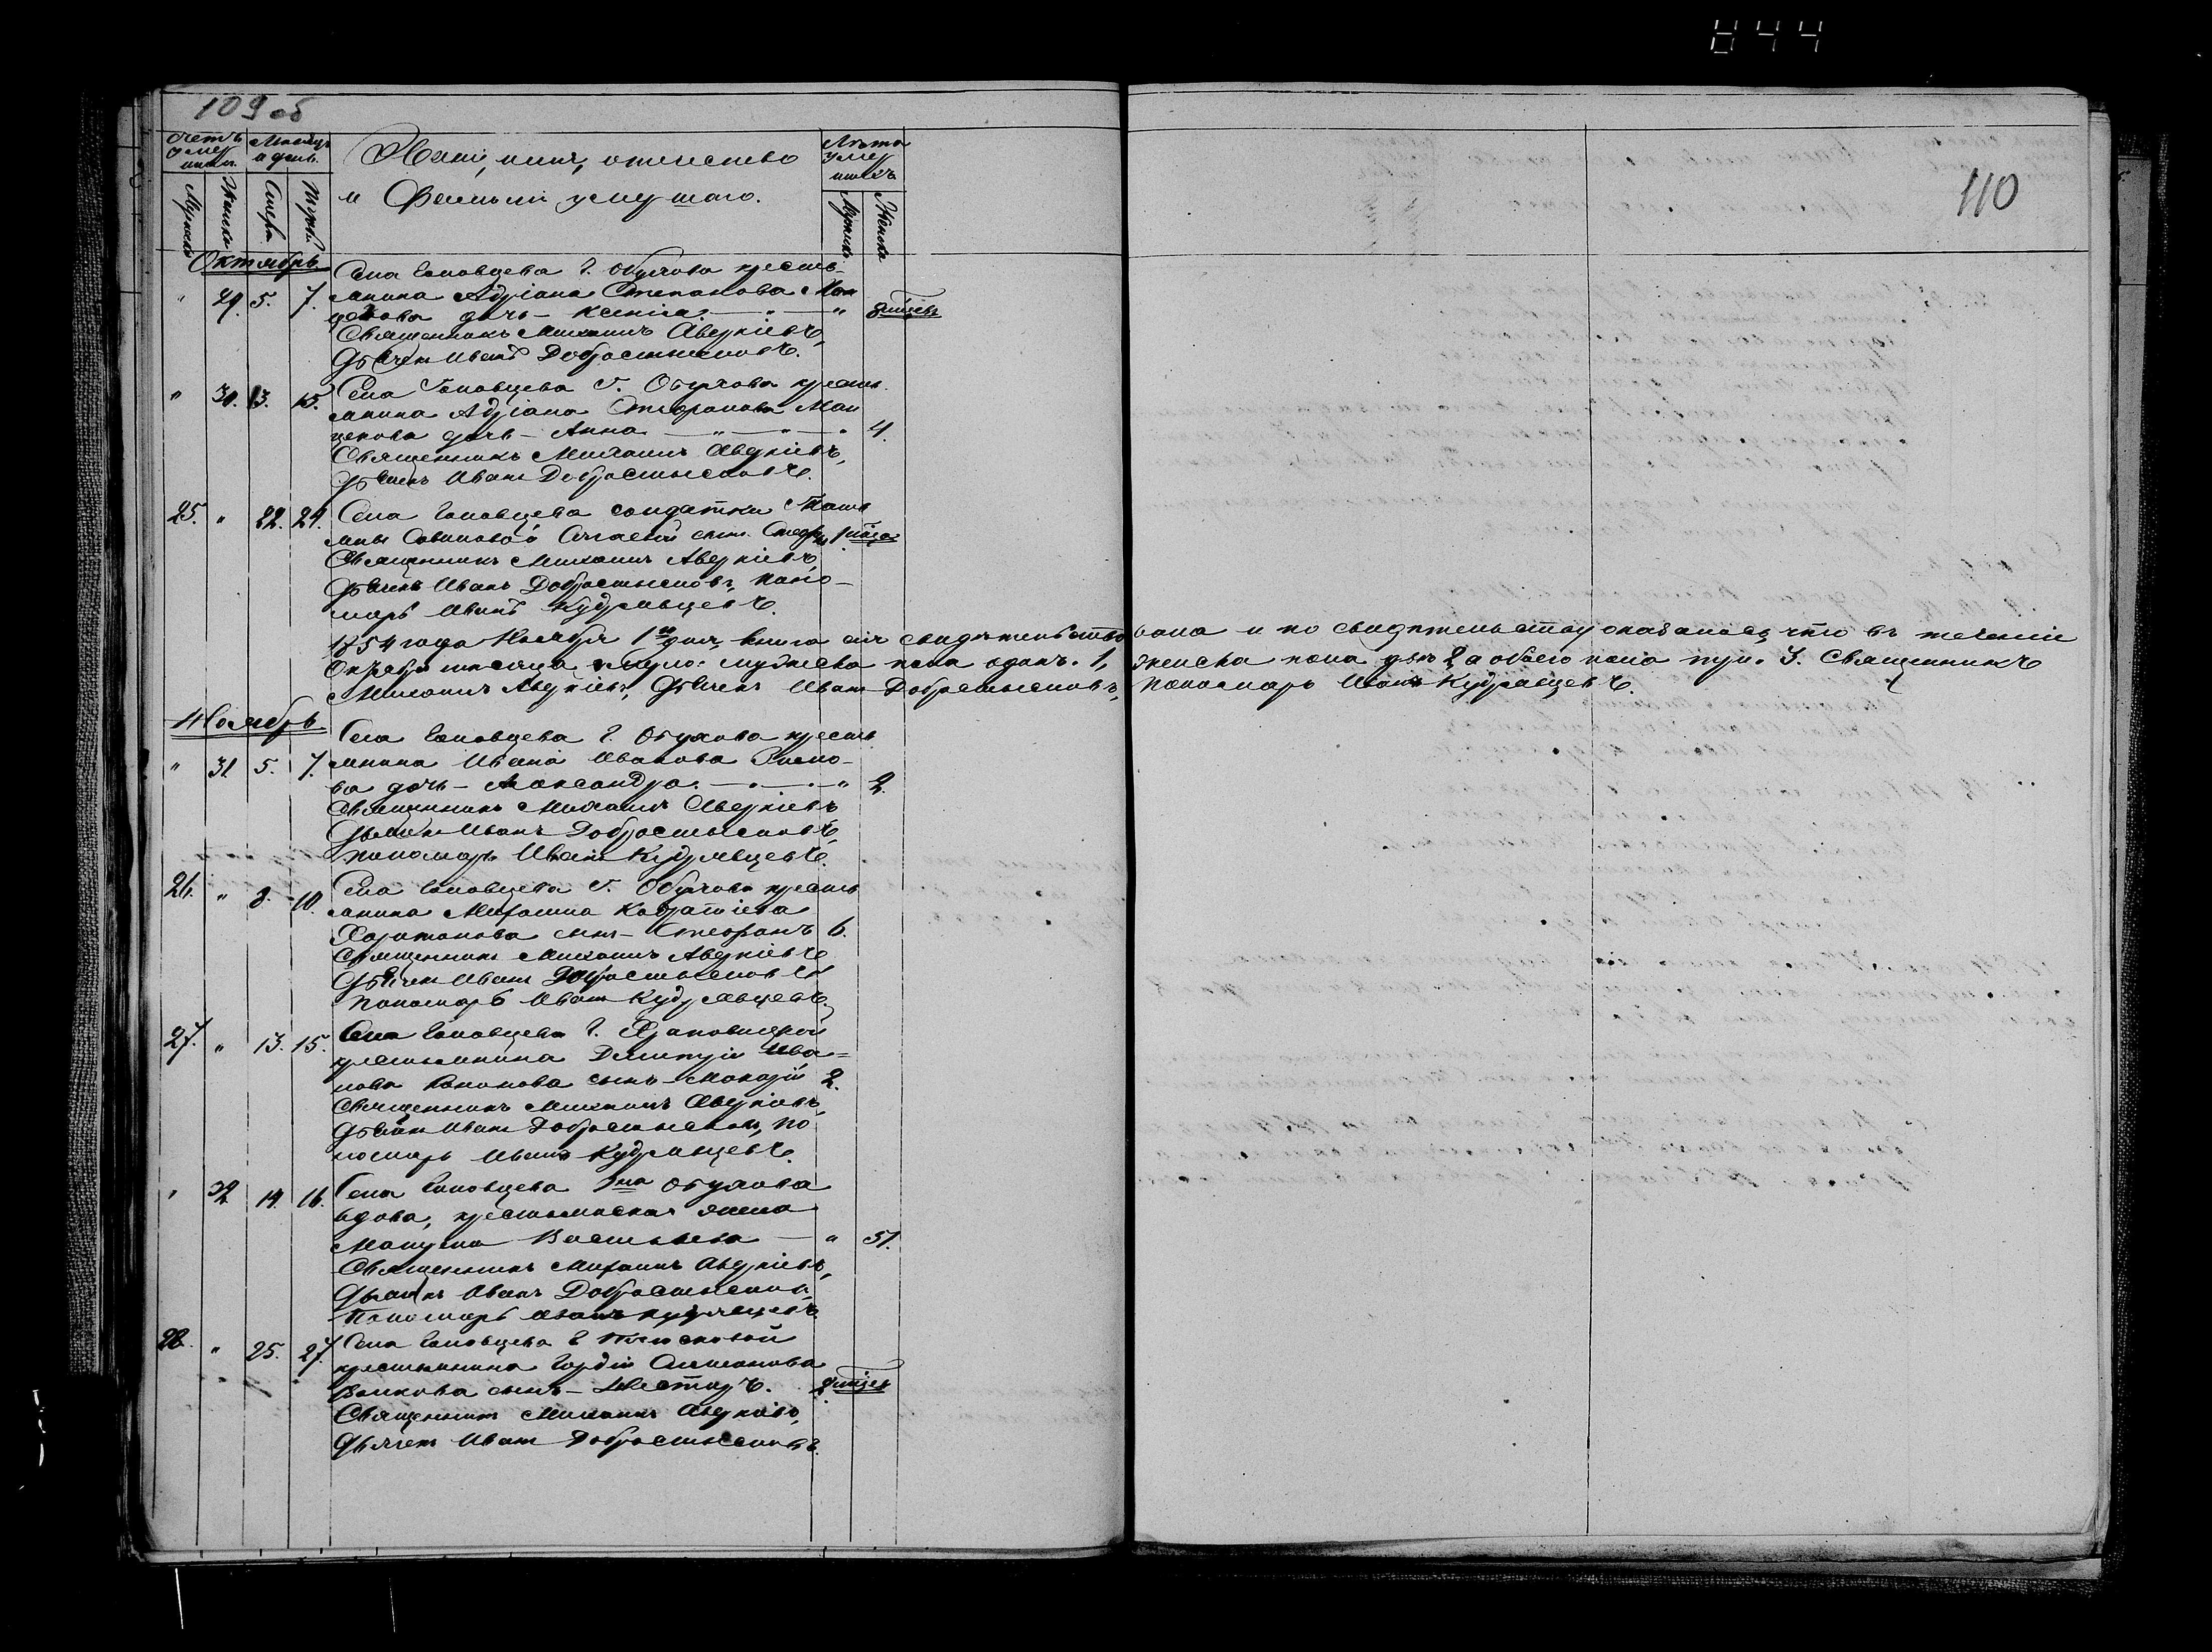 844
109 об
110
Счетъ умершихъ
Мѣсяцъ и день
Званіе, имя, отчество
и Фамилія умершаго.
Лѣта умершихъ
Мужеска
Женска
Смерт.
Погреб.
Мужеска
Женска
Октябрь
Села Головцева д. Обухова кресть-
" 29. 5. 7. янина Адріана Степанова Ман
цекова дочь - Ксенія. "
Священникъ Михаилъ Аверкіевъ,
Дьячекъ Иванъ Добросмысловъ.
Села Головцева д. Обухова кресть
" 30. 13. 15. янина Адріана Стефанова Ман
цекова дочь - Анна " 4.
Священникъ Михаилъ Аверкіевъ,
Дьячекъ Иванъ Добросмысловъ.
25. " 22. 24. Села Головцева солдатки
сынъ Стефанъ
Священникъ Михаилъ Аверкіевъ,
Дьячекъ Иванъ Добросмысловъ, поно-
марь Иванъ Кудрявцевъ.
1854 года Ноября 1го дня книга сія свидѣтельствована и по свидѣтельству оказалось, что въ теченіи
Октября мѣсяца умерло: мужеска пола одинъ. 1, женска пола двѣ 2 а обоего пола три. 3. Священникъ
Михаилъ Аверкіевъ, Дьячекъ Иванъ Добросмысловъ, пономарь Иванъ Кудрявцевъ.
Ноябрь
Села Головцева д. Обухова кресть
" 31 5. 7. янина Ивана Иванова
ва дочь - Александра. " 2.
Священникъ Михаилъ Аверкіевъ
Дьячекъ Иванъ Добросмысловъ,
пономарь Иванъ Кудрявцевъ.
26. " 8. 10. Села Головцева д. Обухова кресть
янина Михаила
Харитонова сынъ - Стефанъ 6.
Священникъ Михаилъ Аверкіевъ
Дьячекъ Иванъ Добросмысловъ
пономарь Иванъ Кудрявцевъ.
27. " 13. 15. Села Головцева д.
крестьянина Димитрія Ива=
нова сынъ - Макарій 2.
Священникъ Михаилъ Аверкіевъ,
Дьячекъ Иванъ Добросмысловъ, по
номарь Иванъ Кудрявцевъ.
" 32 14. 16. Села Головцева Обухова
вдова, крестьянская жена
Васильева " 51.
Священникъ Михаилъ Аверкіевъ,
Дьячекъ Иванъ Добросмысловъ,
Пономарь Иванъ Кудрявцевъ
28. " 25. 27. Села Головцева д.
крестьянина Гордія
Волкова сынъ - Несторъ.
Священникъ Михаилъ Аверкіевъ,
Дьячекъ Иванъ Добросмысловъ.